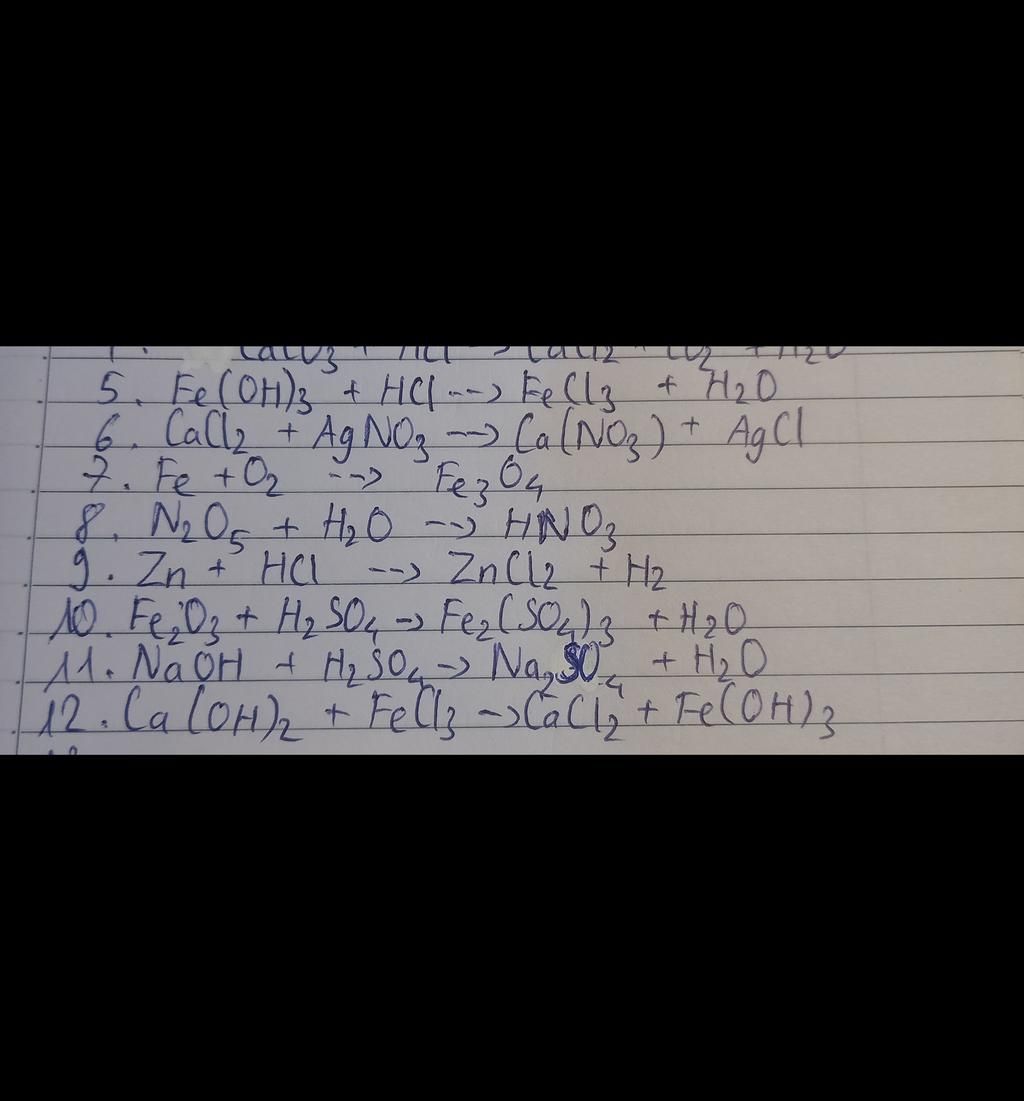 CaCO3 + HCl -> CaCl2 + CO2 + H2O
5. Fe(OH)3 + HCl --> FeCl3 + H2O
6. CaCl2 + AgNO3 --> Ca(NO3) + AgCl
7. Fe + O2 --> Fe3O4
8. N2O5 + H2O --> HNO3
9. Zn + HCl --> ZnCl2 + H2
10. Fe2O3 + H2SO4 -> Fe2(SO4)3 + H2O
11. NaOH + H2SO4 -> Na2SO4 + H2O
12. Ca(OH)2 + FeCl3 -> CaCl2 + Fe(OH)3